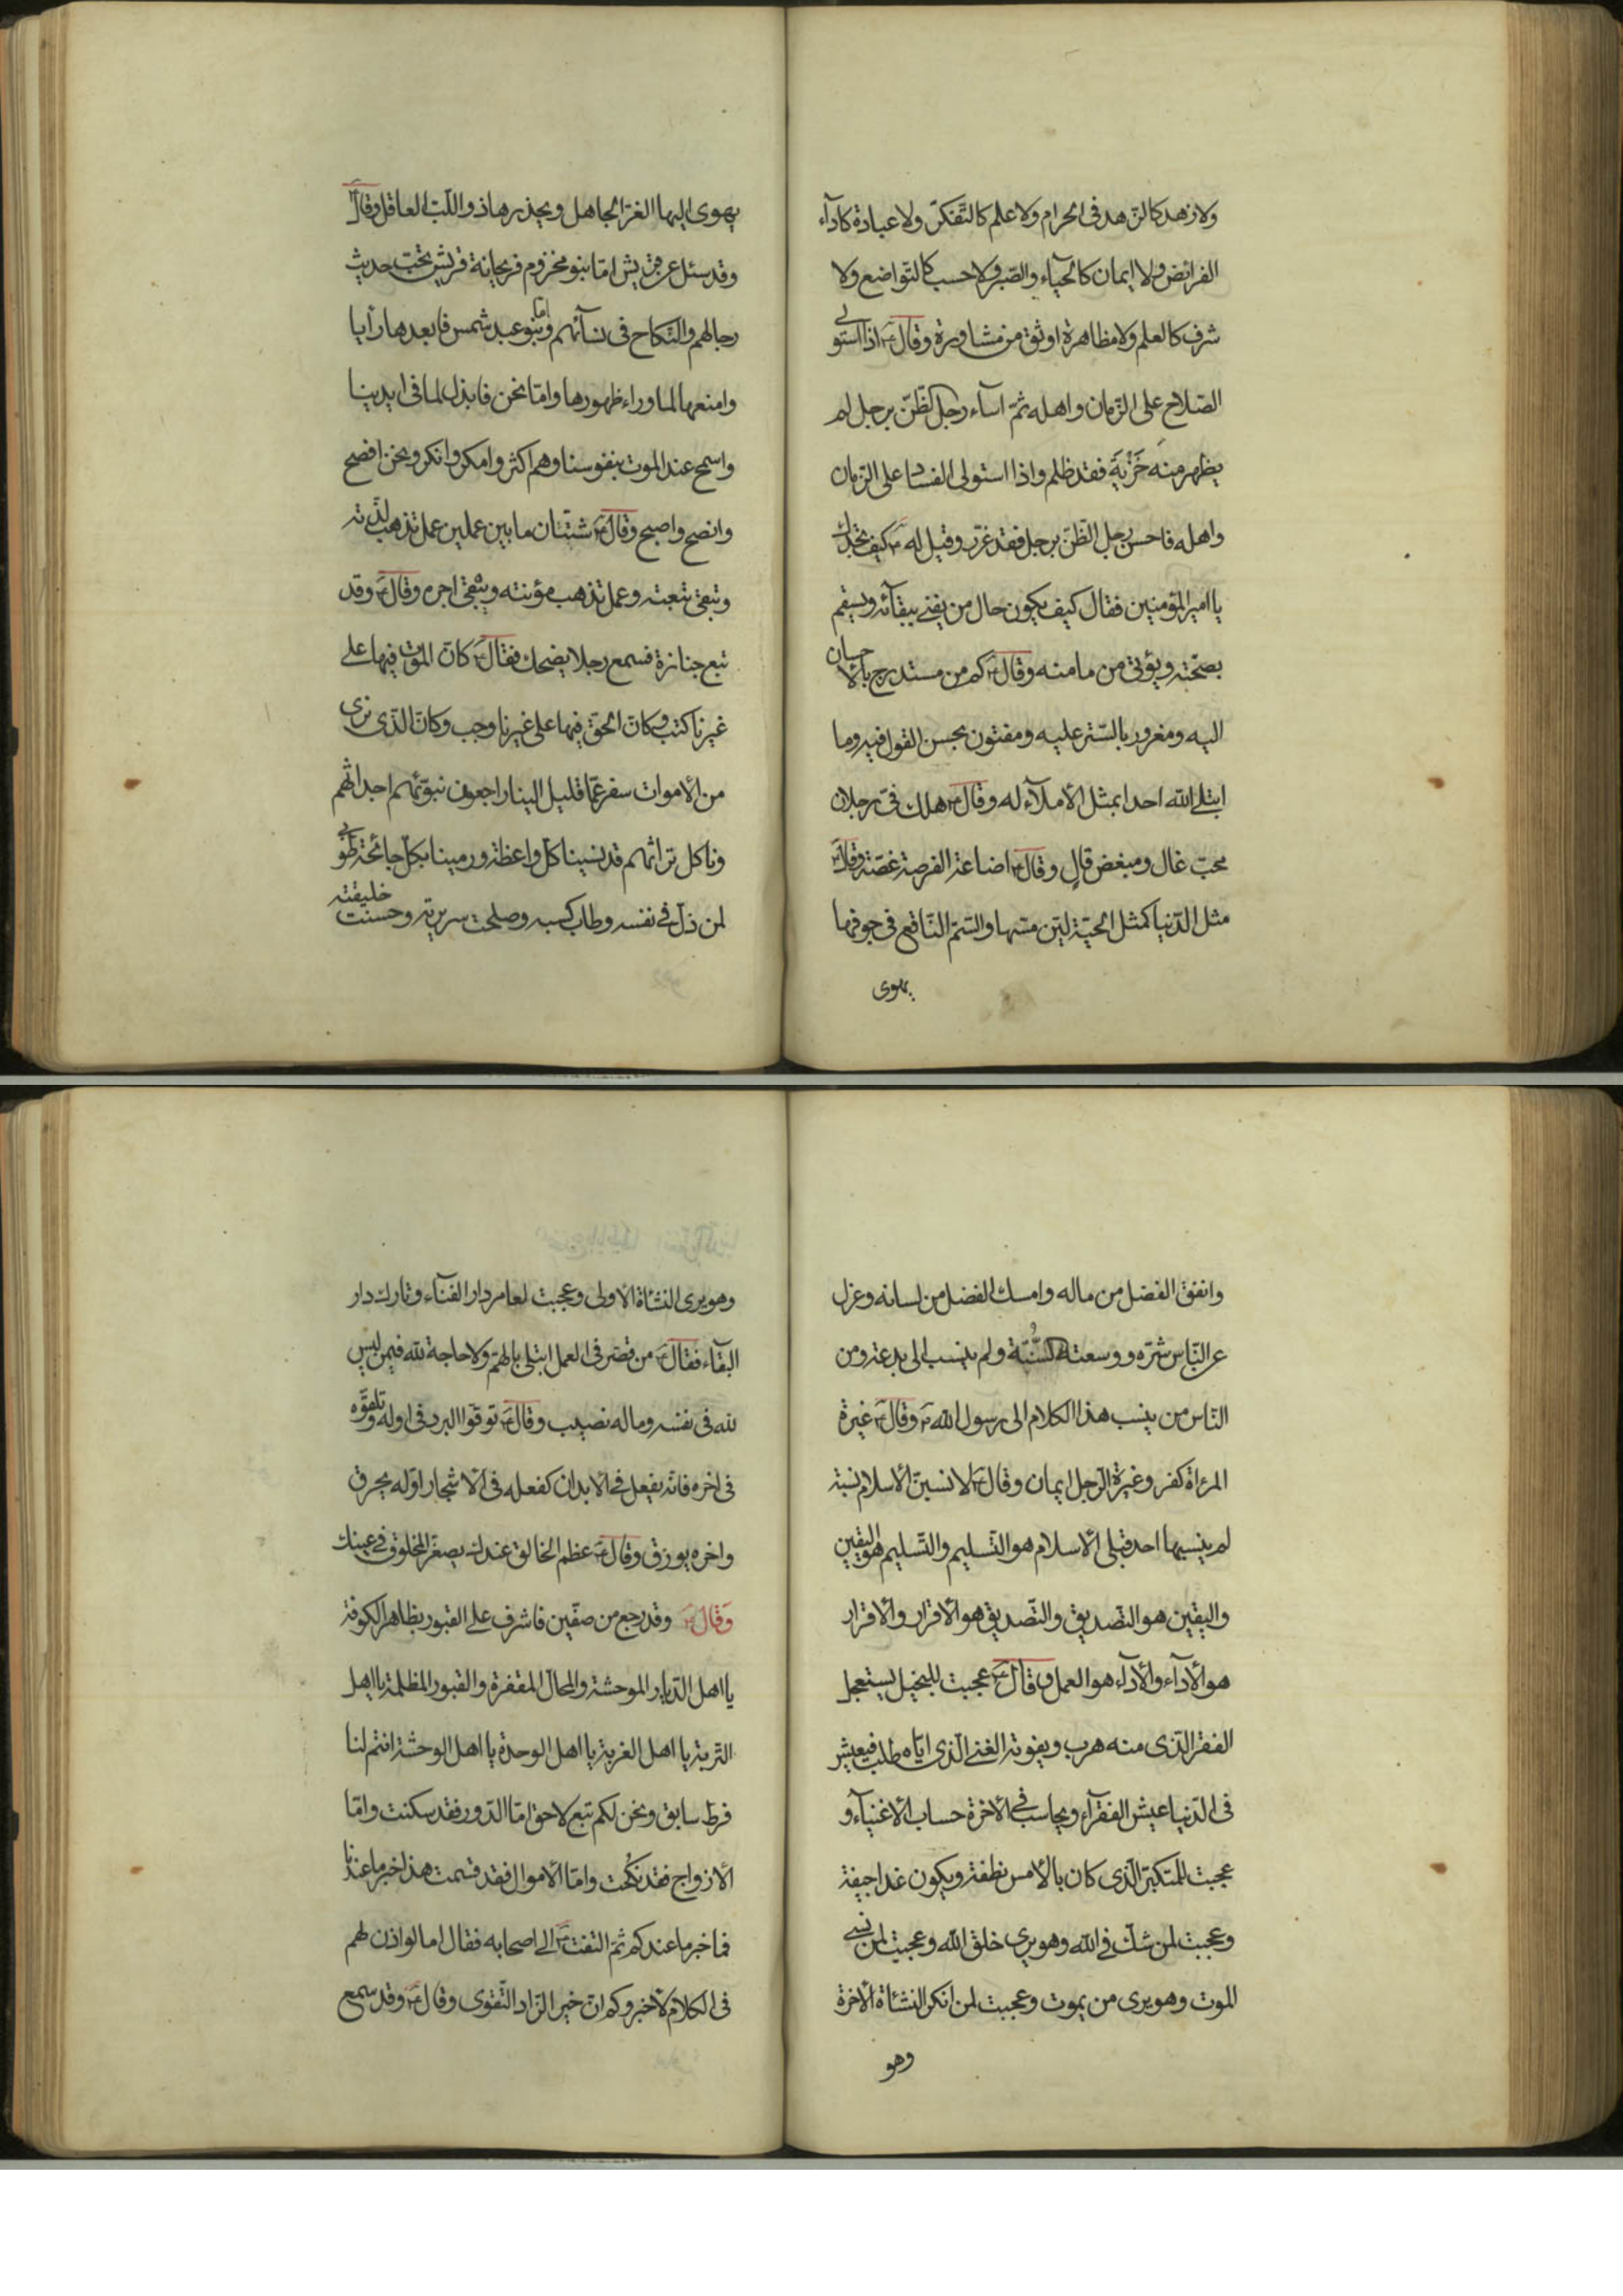 ولا زهد كالزهد فى الحرام ولا علم كالتفكر ولا عبادة كادآء
الفرائض ولا ايمان كالحيآء والصبر ولا حسب كالتواضع ولا
شرف كالعلم ولا مظاهرة اوثق من مشاورة وقال ع اذا استولى
الصّلاح على الزمان واهله ثمّ اسآء رجل الظّنّ برجل لم
يظهر منه خَزْيَة فقد ظلم واذا استولى الفساد على الزمان
واهله فاحسن رجل الظّنّ برجل فقد غرّر وقيل له ع كيف تجدك
يا امير المؤمنين فقال كيف يكون حال من يفنى ببقآئه ويسقم
بصحّته ويؤتى من مامنه وقال ع كم من مستدرج بالاحسان
اليه ومغرور بالسّتر عليه ومفتون بحسن القول فيه وما
ابتلى الله احدا بمثل الاملآء له وقال ع هلك فىّ رجلان
محبّ غال ومبغض قالٍ وقال ع اضاعة الفرصة غصّة وقال ع
مثل الدّنيا كمثل الحيّة ليّن مسّها والسّمّ النّاقع فى جوفها
يهوى
يهوى اليها الغرّ الجاهل ويحذرها ذو اللّبّ العاقل وقال ع
وقد سئل عن قريش امّا بنو مخزوم فريحانة قريش تحبّ حديث
رجالهم والنّكاح فى نسآئهم وامّا بنو عبد شمس فابعدها رأيا
وامنعها لما وراء ظهورها وامّا نحن فابذل لما فى ايدينا
واسمح عند الموت بنفوسنا وهم اكثر وامكر وانكر ونحن افصح
وانصح واصبح وقال ع شتّان ما بين عملين عمل تذهب لذّته
وتبقى تبعته وعمل تذهب مؤنته ويبقى اجره وقال ع وقد
تبع جنازة فسمع رجلا يضحك فقال ع كانّ الموت فيها على
غيرنا كتب وكانّ الحقّ فيها على غيرنا وجب وكانّ الّذى نرى
من الاموات سفر عمّا قليل الينا راجعون نبوّئهم اجداثهم
وناكل تراثهم قد نسينا كلّ واعظة ورمينا بكلّ جائحة طوبى
لمن ذلّ فى نفسه وطاب كسبه وصلحت سريرته وحسنت خليقته
وانفق الفضل من ماله وامسك الفضل من لسانه وعزل
عن النّاس شرّه ووسعته السُّنّة ولم ينسب الى بدعة ومن
النّاس من ينسب هذا الكلام الى رسول الله ص وقال ع غيرة
المرءاة كفر وغيرة الرّجل ايمان وقال ع لانسبنّ الاسلام نسبة
لم ينسبها احد قبلى الاسلام هو التّسليم والتّسليم هو اليقين
واليقين هو التّصديق والتّصديق هو الاقرار والاقرار
هو الأدآء والأدآء هو العمل وقال ع عجبت للبخيل يستعجل
الفقر الّذى منه هرب ويفوته الغنى الّذى ايّاه طلب فيعيش
فى الدّنيا عيش الفقرآء ويحاسب فى الاخرة حساب الاغنيآء و
عجبت للمتكبّر الّذى كان بالامس نطفة ويكون غدا جيفة
وعجبت لمن شكّ فى الله وهو يرى خلق الله وعجبت لمن نسى
الموت وهو يرى من يموت وعجبت لمن انكر النشئاة الاخرة
وهو
وهو يرى النشئاة الاولى وعجبت لعامر دار الفنآء وتارك دار
البقآء فقال ع من قصر فى العمل ابتلى بالهمّ ولا حاجة لله فيمن ليس
لله فى نفسه وماله نصيب وقال ع توقّوا البرد فى اوله وتلقّوه
فى اخره فانّه يفعل فى الابدان كفعله فى الاشجار اوّله يحرق
واخره يورق وقال ع عظم الخالق عندك يصغّر المخلوق فى عينك
وقال ع وقد رجع من صفّين فاشرف على القبور بظاهر الكوفة
يا اهل الدّيار الموحشة والمحالّ المقفرة والقبور المظلمة يا اهل
التّربة يا اهل الغربة يا اهل الوحدة يا اهل الوحشة انتم لنا
فرط سابق ونحن لكم تبع لاحق امّا الدّور فقد سكنت وامّا
الازواج فقد نكُحت وامّا الاموال فقد قسمت هذا خبر ما عندنا
فما خبر ما عندكم ثمّ التفت ع الى اصحابه فقال اما لو اذن لهم
فى الكلام لأخبروكم انّ خير الزّاد التّقوى وقال ع وقد سمع